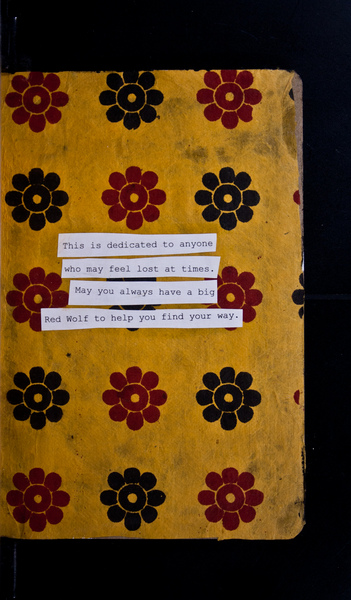 This is dedicated to anyone
who may feel lost at times.
May you always have a big
Red Wolf to help you find your way.